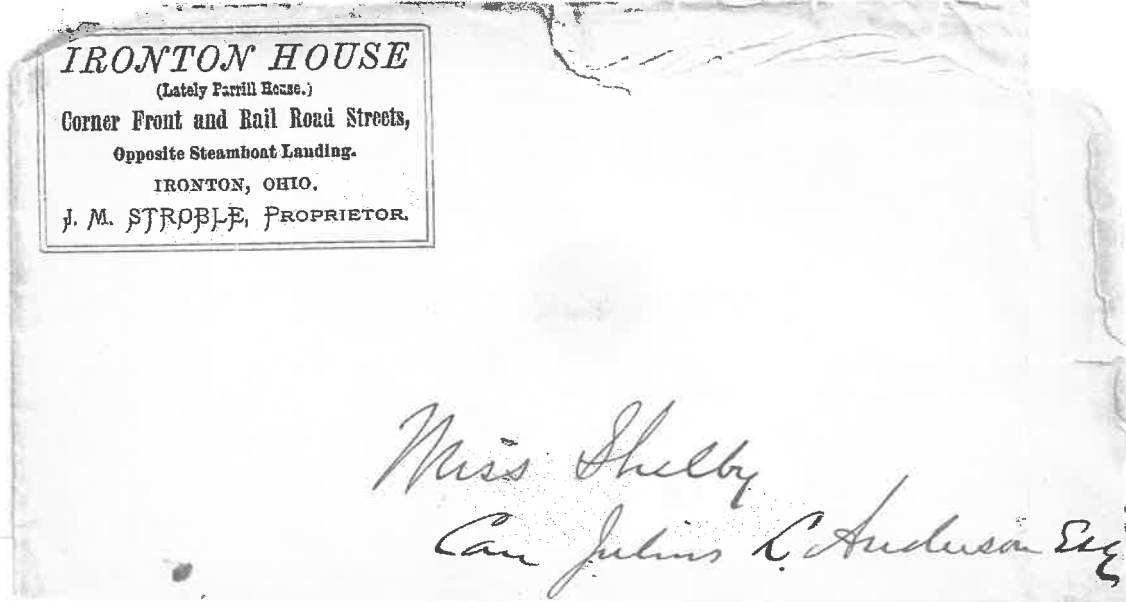 IRONTON HOUSE
(Lately Parrill House.)
Corner Front and Rail Road Streets,
Opposite Steamboat Landing.
IRONTON, OHIO.
J. M. STROBLE, PROPRIETOR.
Miss Shelby
Care Julius L. Anderson Esq